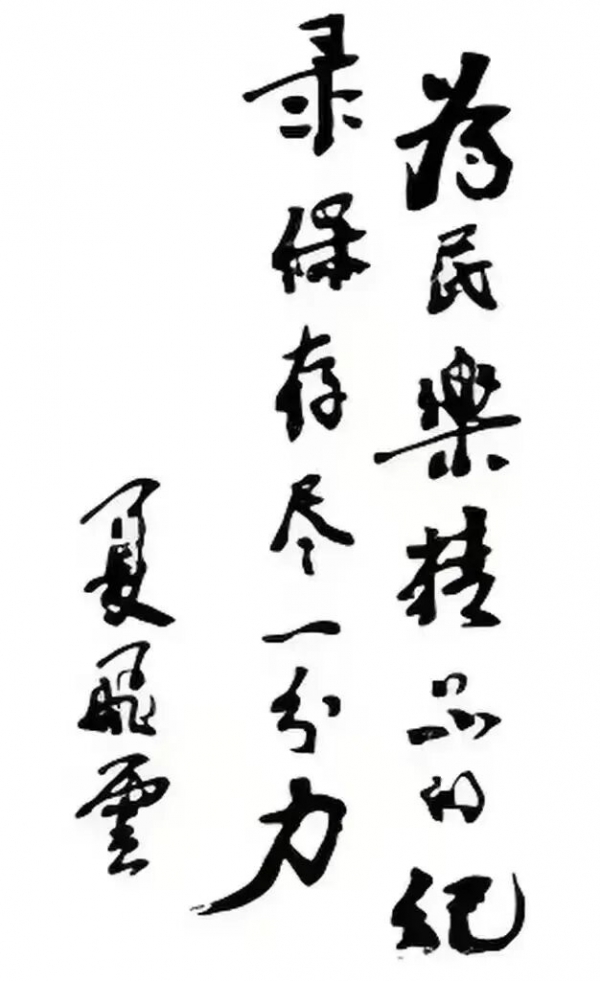 為民樂精品的纪
录保存尽一分力
夏飛雲